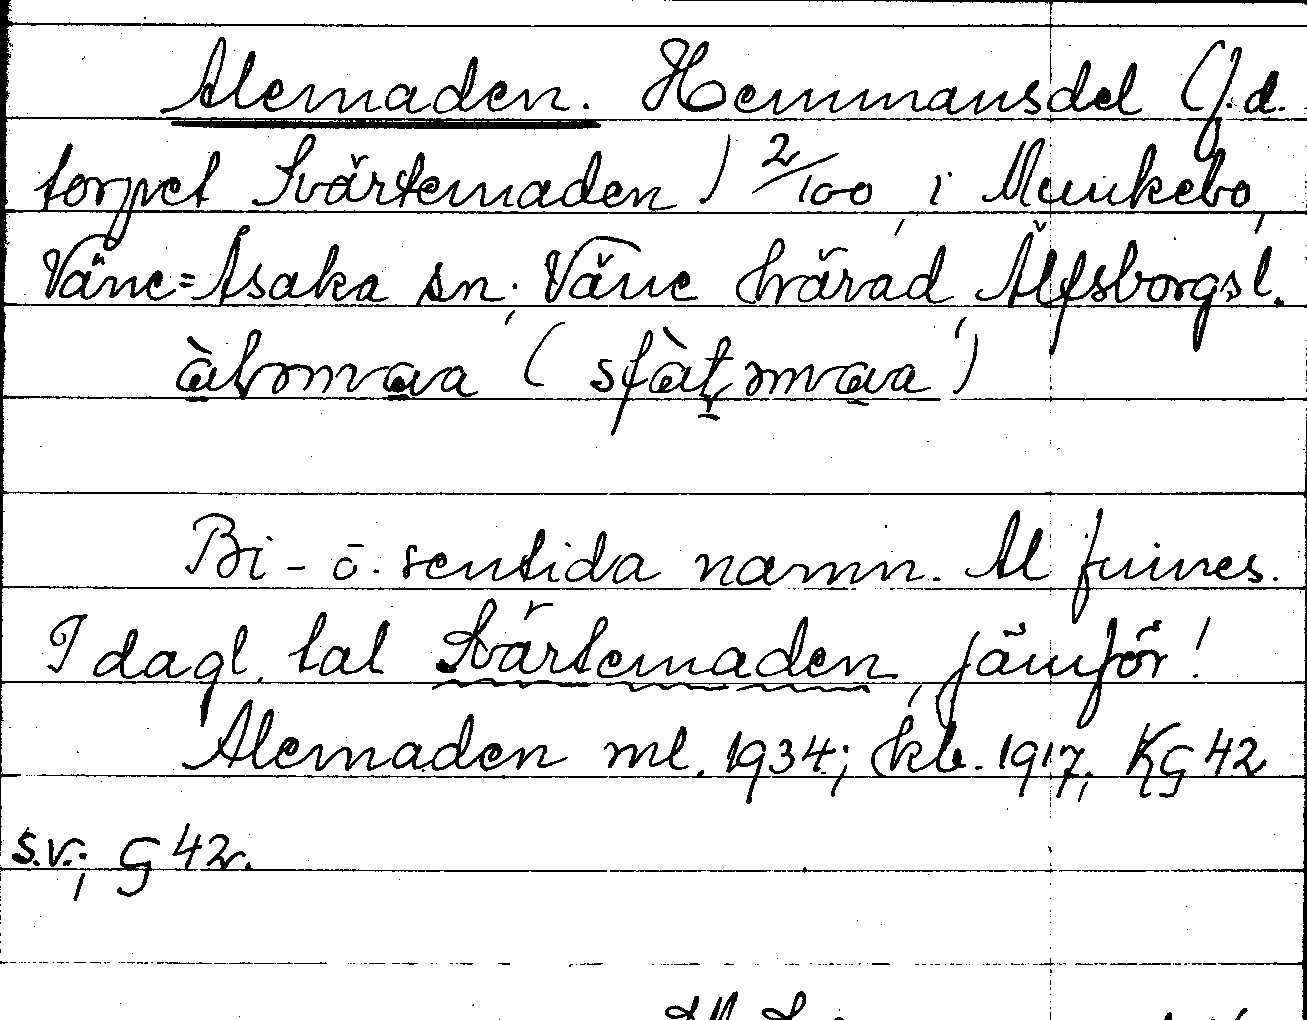 Alemaden. Hemmansdel (f.d.
torpet Svärtemaden) 2/100, i Munkebo,
Väne=Åsaka sn, Väne härad, Älfsborgsl.
àlɘmaa (sfàt̠ɘmaa)
Bi- o. sentida namn. Al finnes.
I dagl. tal Svärtemaden, jämför!
Alemaden ml. 1934; kb. 1917; KG 42
s.v.; G 42.